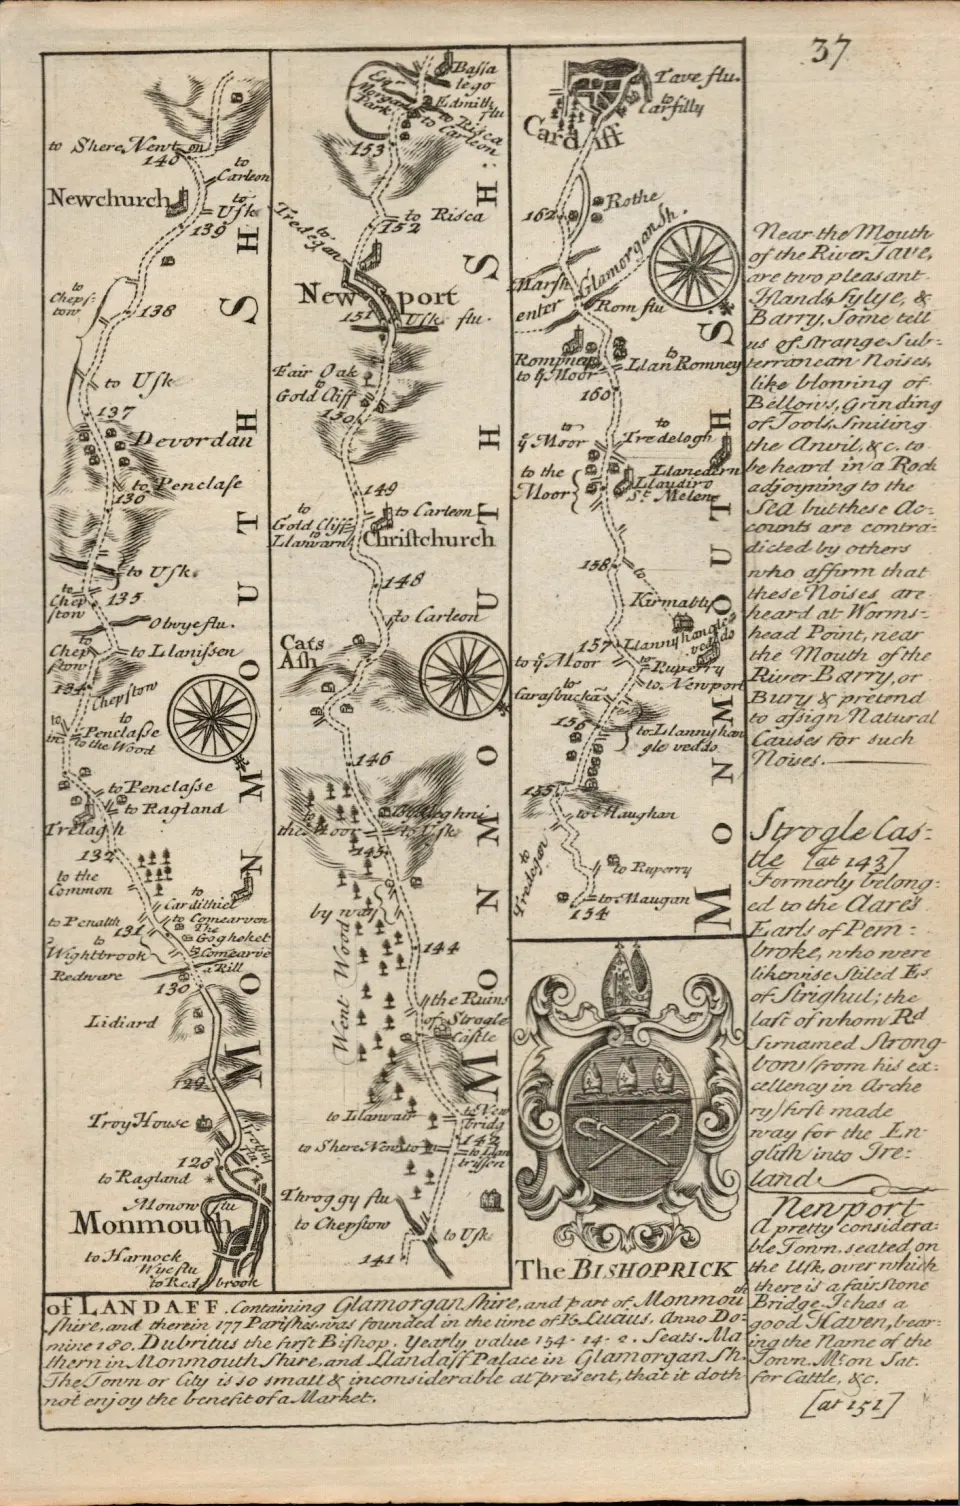 37
to Shere Newton
140
to
Carleon
Newchurch
to
Usk
139
to
Cheps-
tow
138
to Usk
137
Devordan
to Penclase
136
to Usk
to
Chep
stow
135
Obvye flu.
to
Chep
stow
to Llanissen
134
Chepstow
to
Penclasse
to the Wood
to Penclasse
to Ragland
Trelagh
132
to the
Common
to
Cardithiel
to Penalth
to Comearvon
131
The
Gogheket
to
Wightbrook
to Comearve
a Rill
Redware
130
Lidiard
129
Troy House
Trothy
flu.
128
to Ragland
Monow flu
Monmouth
to Harnock
Wye flu
to Red brook
MONMOUTH SH
Bassa
lego
Esqr
Morgans
Park
Edmith flu
to Risca
to Carleon
153
to
Tredegar
to Risca
152
New port
151
Usk flu.
Fair Oak
to
Gold Cliff
150
149
to Carleon
to
Gold Cliff
to
Llanvarn
Christchurch
148
to Carleon
Cats
Ash
146
to
the Moor
to Usk
145
by way
Went Wood
144
the Ruins
of Strogle
Castle
to Llanvair
to New
bridg
142
to Shere Newton
to Llan
tryssen
Throggy flu
to Chepstow
to Usk
141
MONMOUTH SH:
Tave flu.
to
Carfilly
Cardiff
Rothe
162
Glamorgan Sh.
Marsh
enter
Rom flu
Rompney
to ye Moor
to
Llan Romney
160
to
ye Moor
to
Tredelogh
to the
Moor
Llanedern
Llaudiro
St. Melene
158
to
Kirmably
157
Llannyhangle
veddo
to ye Moor
to
Ruperry
to Newport
to
Carasbucka
156
to Llannyhan
gle veddo
155
to Maughan
to
Tredeger
to Ruperry
to Maugan
154
MONMOUTH SH
The BISHOPRICK
of LANDAFF. Containing Glamorgan shire, and part of Monmouth
shire, and therein 177 Parishes was founded in the time of K. Luaus, Anno Do-
mine 180. Dubritus the first Bishop. Yearly value 154-14-2. Seats. Ma
thern in Monmouth Shire, and Llandaff Palace in Glamorgan Sh.
The Town or City is so small & inconsiderable at present, that it doth
not enjoy the benefit of a Market.
Near the Mouth
of the River Tave,
are two pleasant
Islands, Sylye, &
Barry, Some tell
us of strange Sub-
terranean Noises,
like blowing of
Bellows, Grinding
of Tools, Smiting
the Anvil, &c. to
be heard in a Rock
adjoyning to the
Sea but these Ac-
counts are contra-
dicted by others
who affirm that
these Noises are
heard at Worms-
head Point, near
the Mouth of the
River Barry, or
Bury & pretend
to assign Natural
Causes for such
Noises.
Strogle Cas-
tle [at 143]
Formerly belong-
ed to the Clares
Earls of Pem-
broke, who were
likewise stiled Es
of Strighul; the
last of whom Rd
Sirnamed Strong-
bow (from his ex-
cellency in Arche
ry) first made
way for the En-
glish into Ire-
land
Newport
A pretty considera-
ble Town, seated on
the Usk, over which
there is a fair stone
Bridge. It has a
good Haven, bear-
ing the Name of the
Town. Mt. on Sat.
for Cattle, &c.
[at 151]